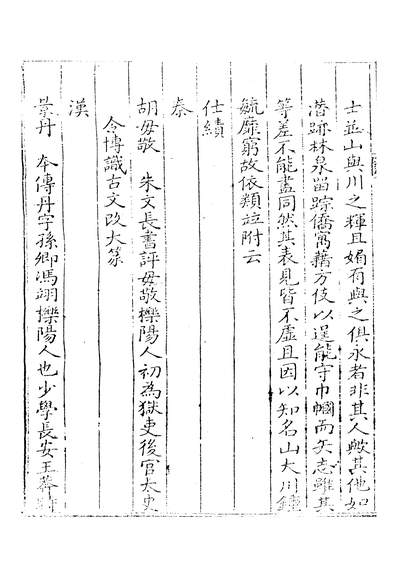 士並山與川之輝且媚有與之俱永者非其人歟其他如
潛跡林泉留踪僑寓藉方伎以逞能守巾幗而矢志雖其
等差不能盡同然其表見皆不虛且因以知名山大川鍾
毓靡窮故依類竝附云
仕績
秦
胡毋敬　朱文長書評毋敬櫟陽人初為獄吏後官太史
令博識古文改大篆
漢
景丹　本傳丹字孫卿馮翊櫟陽人也少學長安王莽時